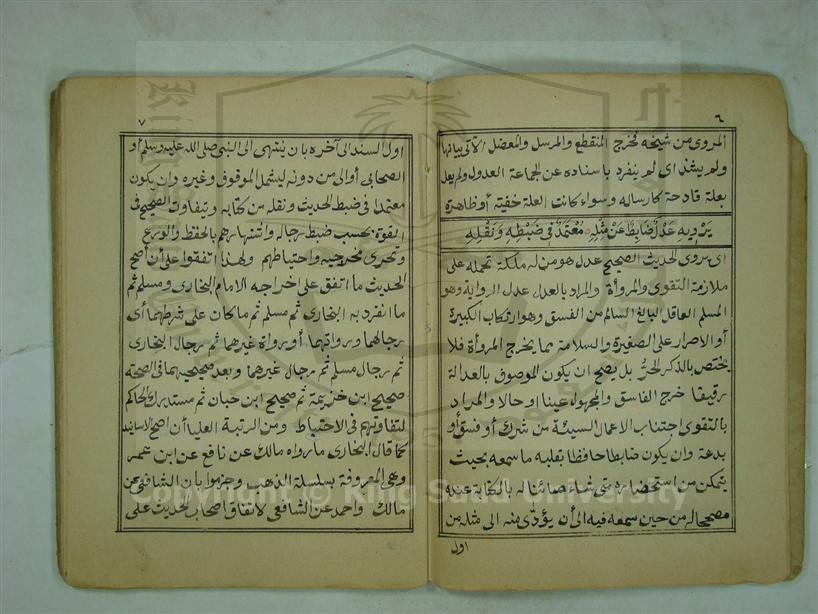 ٦
المروى من شيخه فخرج المنقطع والمرسل والمعضل الآتى بيانها
ولم يشذ اى لم ينفرد باسناده عن الجماعة العدول ولم يعل
بعلة قادحة كارساله وسواء كانت العلة خفيّة أو ظاهرة
يَرْوِيهِ عَدْلٌ ضَابِطٌ عَنْ مِثْلِهِ مُعْتَمَدٌ فِى ضَبْطِهِ وَنَقْلِهِ
اى يروى الحديث الصحيح عدل هو من له ملكة تحمله على
ملازمة التقوى والمروأة والمراد بالعدل عدل الرواية وهو
المسلم العاقل البالغ السالم من الفسق وهو ارتكاب الكبيرة
أو الاصرار على الصغيرة والسلامة مما يخرج المروأة فلا
يختص بالذكر الحرّ بل يصح ان يكون الموصوف بالعدالة
رقيقا خرج الفاسق والمجهول عينا او حالا والمراد
بالتقوى اجتناب الاعمال السيئة من شرك أو فسق أو
بدعة وان يكون ضابطا حافظا بقلبه ما سمعه بحيث
يتمكن من استحضاره متى شاء صائنا له بالكتابة عنده
مصححا له من حين سمعه فيه الى أن يؤدّى منه الى مثله من
اول
٧
اول السند الى آخره بان ينتهى الى النبى صلى الله عليه وسلم أو
الصحابى أو الى من دونه ليشمل الموقوف وغيره وان يكون
معتمدا فى ضبط الحديث ونقله من كتابه ويتفاوت الصحيح فى
القوة بحسب ضبط رجاله واشتهارهم بالحفظ والورع
وتحرى مخرجيه واحتياطهم ولهذا اتفقوا على أن أصح
الحديث ما اتفق على اخراجه الامام البخارى ومسلم ثم
ما انفرد به البخارى ثم مسلم ثم ما كان على شرطهما أى
رجالهما ورواتهما أو رواة غيرهما ثم رجال البخارى
ثم رجال مسلم ثم رجال غيرهما وبعد صحيحيهما فى الصحة
صحيح ابن خزيمة ثم صحيح ابن حبان ثم مستدرك الحاكم
لتفاوتهم فى الاحتياط ومن الرتبة العليا أن اصح الاسانيد
كما قال البخارى ما رواه مالك عن نافع عن ابن عمر
وهى المعروفة بسلسلة الذهب وجزموا بان الشافعى عن
مالك واحد عن الشافعى لاتفاق اصحاب الحديث على
Copyright © King Saud University